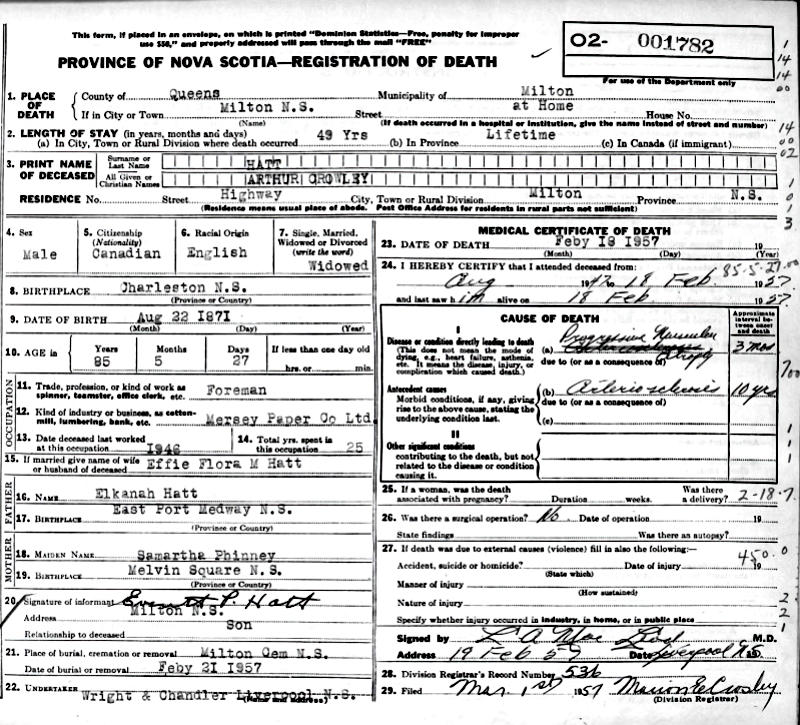 This form, if placed in an envelope, on which is printed "Dominion Statistics—Free, penalty for improper
use $50," and properly addressed will pass through the mail "FREE"
PROVINCE OF NOVA SCOTIA—REGISTRATION OF DEATH
O2- 001782
For use of the Department only
1. PLACE OF DEATH
County of Queens Municipality of Milton
If in City or Town Milton N.S. Street at Home House No.
(Name) (If death occurred in a hospital or institution, give the name instead of street and number)
2. LENGTH OF STAY (in years, months and days)
(a) In City, Town or Rural Division where death occurred 49 Yrs (b) In Province Lifetime (c) In Canada (if immigrant)
3. PRINT NAME OF DECEASED
Surname or Last Name HATT
All Given or Christian Names ARTHUR CROWLEY
RESIDENCE No. Street Highway City, Town or Rural Division Milton Province N.S.
(Residence means usual place of abode. Post Office Address for residents in rural parts not sufficient)
4. Sex
Male
5. Citizenship (Nationality)
Canadian
6. Racial Origin
English
7. Single, Married, Widowed or Divorced (write the word)
Widowed
8. BIRTHPLACE Charleston N.S.
(Province or Country)
9. DATE OF BIRTH Aug 22 I87I
(Month) (Day) (Year)
10. AGE in
Years 85
Months 5
Days 27
If less than one day old
hrs. or min.
OCCUPATION
11. Trade, profession, or kind of work as spinner, teamster, office clerk, etc. Foreman
12. Kind of industry or business, as cotton-mill, lumbering, bank, etc. Mersey Paper Co Ltd.
13. Date deceased last worked at this occupation I946
14. Total yrs. spent in this occupation 25
15. If married give name of wife or husband of deceased Effie Flora M Hatt
FATHER
16. NAME Elkanah Hatt
17. BIRTHPLACE East Port Medway N.S.
(Province or Country)
MOTHER
18. MAIDEN NAME Samartha Phinney
19. BIRTHPLACE Melvin Square N.S.
(Province or Country)
20. Signature of informant Everett P. Hatt
Address Milton N.S.
Relationship to deceased Son
21. Place of burial, cremation or removal Milton Cem N.S.
Date of burial or removal Feby 2I I957
22. UNDERTAKER Wright & Chandler Liverpool N.S.
(Name and address)
MEDICAL CERTIFICATE OF DEATH
23. DATE OF DEATH Feby I8 I957 19
(Month) (Day) (Year)
24. I HEREBY CERTIFY that I attended deceased from: 85-5-27.00
Aug 1947 to 18 Feb 1957
and last saw him alive on 18 Feb 1957.
CAUSE OF DEATH
Approximate interval between onset and death
I
Disease or condition directly leading to death
(This does not mean the mode of dying, e.g., heart failure, asthenia, etc. It means the disease, injury, or complication which caused death.)
(a) Progressive Muscular Atrophy 3 mos
due to (or as a consequence of)
Antecedent causes
Morbid conditions, if any, giving rise to the above cause, stating the underlying condition last.
(b) Arteriosclerosis 10 yrs
due to (or as a consequence of)
(c)
II
Other significant conditions
contributing to the death, but not related to the disease or condition causing it.
25. If a woman, was the death associated with pregnancy? Duration weeks. Was there a delivery? 2-18.7
26. Was there a surgical operation? No. Date of operation 19
State findings Was there an autopsy?
27. If death was due to external causes (violence) fill in also the following:— 450.0
Accident, suicide or homicide? Date of injury 19
(State which)
Manner of injury
(How sustained)
Nature of injury
Specify whether injury occurred in industry, in home, or in public place
Signed by M.D.
Address Liverpool N.S.
Date 19 Feb 57
28. Division Registrar's Record Number 536
29. Filed Mar. 1st 1957 Marion E Crosby
(Division Registrar)